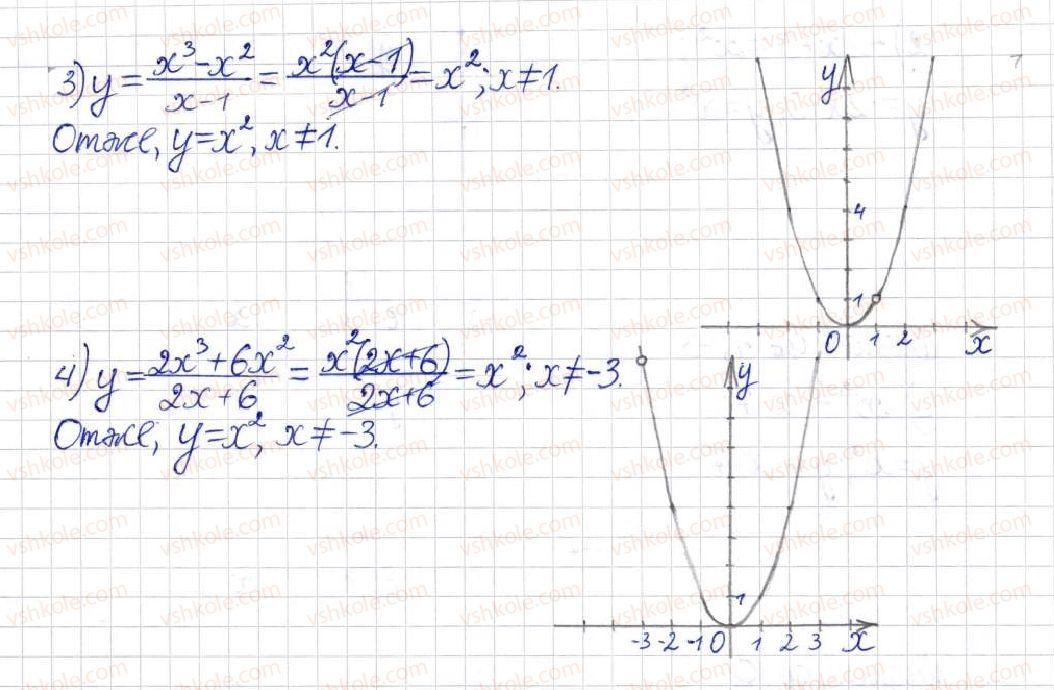 3) y = (x³-x²)/(x-1) = (x²(x-1))/(x-1) = x²; x≠1.
Отже, y=x², x≠1.
y
4
1
0 1 2 x
4) y = (2x³+6x²)/(2x+6) = (x²(2x+6))/(2x+6) = x²; x≠-3.
Отже, y=x², x≠-3.
y
1
-3 -2 -1 0 1 2 3 x
vshkole.com